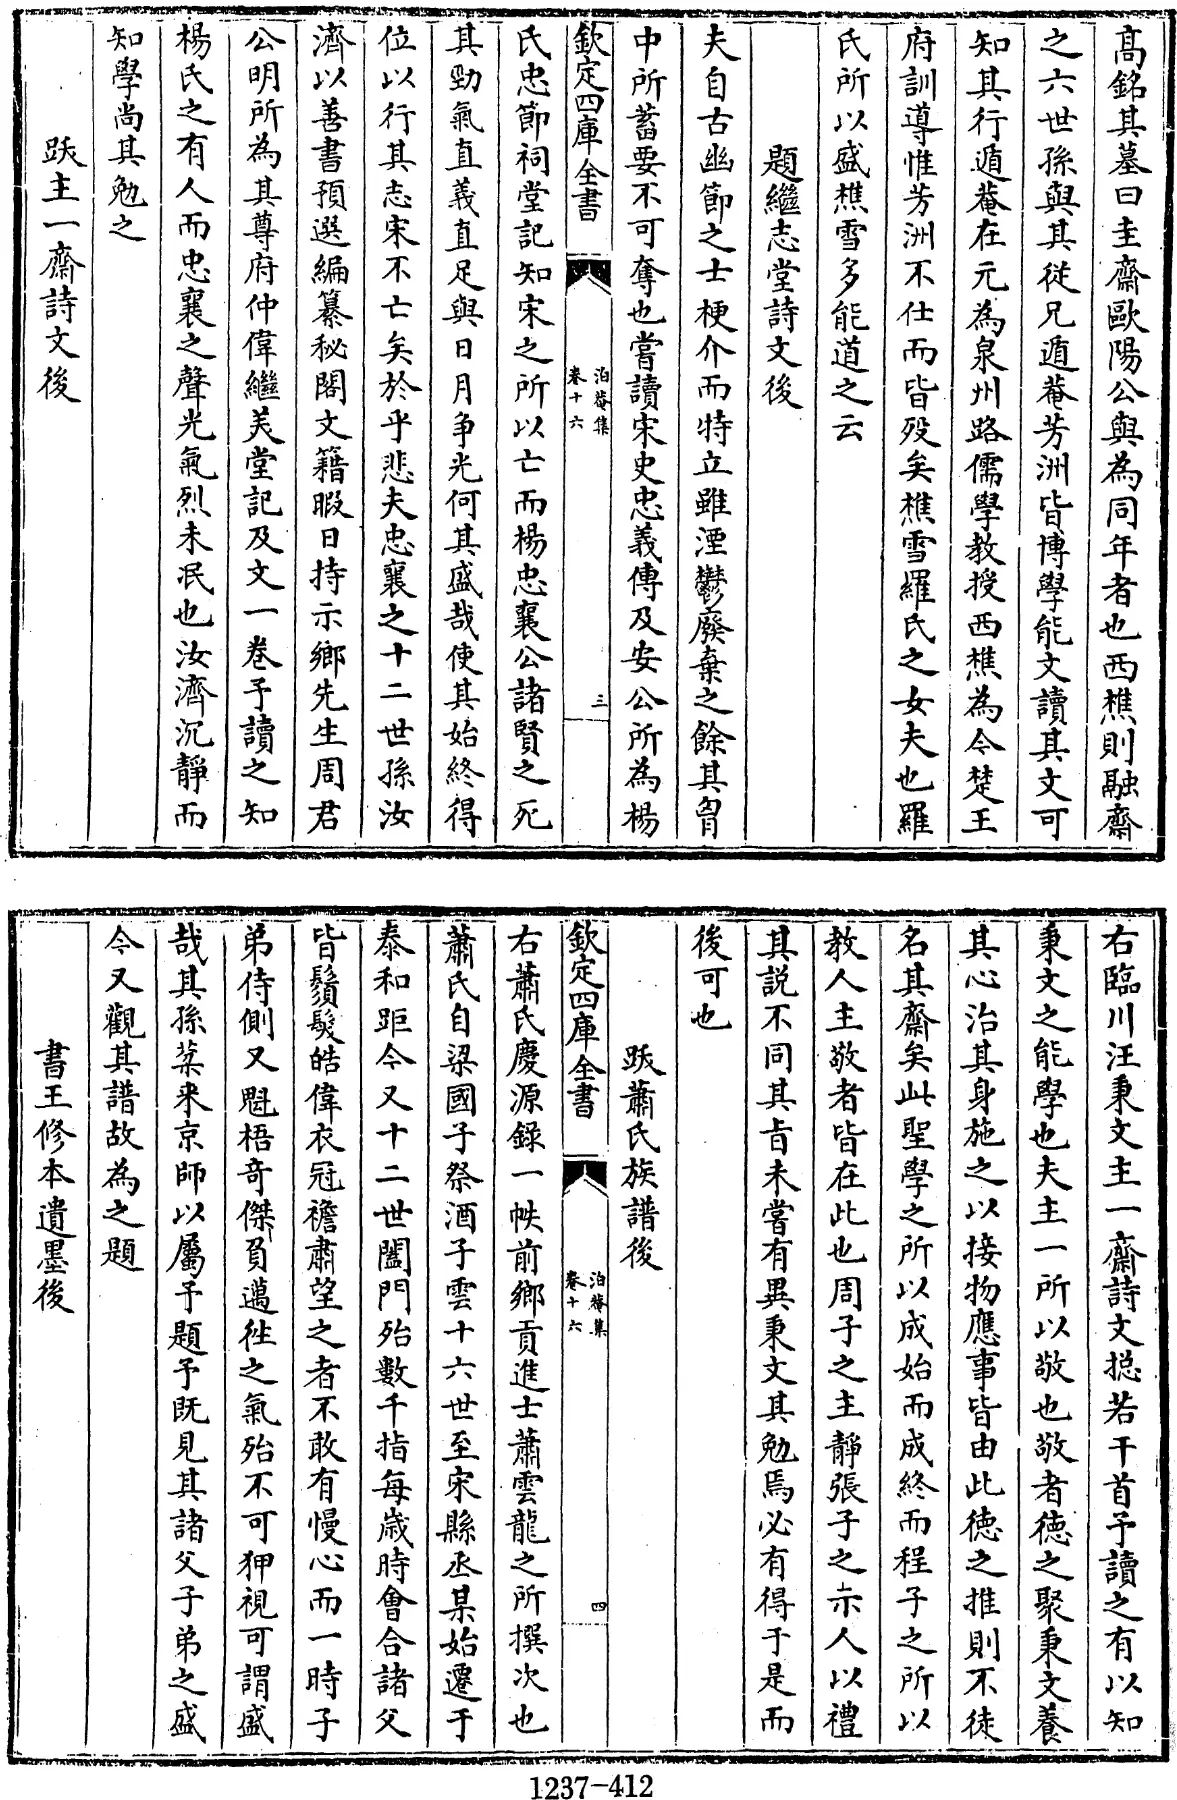 高銘其墓曰圭齋歐陽公與為同年者也西樵則融齋
之六世孫與其從兄遁菴芳洲皆博學能文讀其文可
知其行遁菴在元為泉州路儒學教授西樵為今楚王
府訓導惟芳洲不仕而皆殁矣樵雪羅氏之女夫也羅
氏所以盛樵雪多能道之云
題繼志堂詩文後
夫自古幽節之士梗介而特立雖湮鬱廢棄之餘其胷
中所蓄要不可奪也嘗讀宋史忠義傳及安公所為楊
欽定四庫全書
泊菴集
卷十六
三
氏忠節祠堂記知宋之所以亡而楊忠襄公諸賢之死
其勁氣直義直足與日月争光何其盛哉使其始終得
位以行其志宋不亡矣於乎悲夫忠襄之十二世孫汝
濟以善書預選編纂秘閣文籍暇日持示鄉先生周君
公明所為其尊府仲偉繼美堂記及文一卷予讀之知
楊氏之有人而忠襄之聲光氣烈未泯也汝濟沉靜而
知學尚其勉之
跋主一齋詩文後
右臨川汪秉文主一齋詩文捴若干首予讀之有以知
秉文之能學也夫主一所以敬也敬者徳之聚秉文養
其心治其身施之以接物應事皆由此徳之推則不徒
名其齋矣此聖學之所以成始而成終而程子之所以
教人主敬者皆在此也周子之主靜張子之示人以禮
其説不同其旨未嘗有異秉文其勉焉必有得于是而
後可也
跋蕭氏族譜後
欽定四庫全書
泊菴集
卷十六
四
右蕭氏慶源錄一帙前鄉貢進士蕭雲龍之所撰次也
蕭氏自梁國子祭酒子雲十六世至宋縣丞某始遷于
泰和距今又十二世闔門殆數千指每歲時會合諸父
皆鬚髮皓偉衣冠襜肅望之者不敢有慢心而一時子
弟侍側又魁梧奇傑負邁徃之氣殆不可狎視可謂盛
哉其孫棻來京師以屬予題予既見其諸父子弟之盛
今又觀其譜故為之題
書王修本遺墨後
1237-412